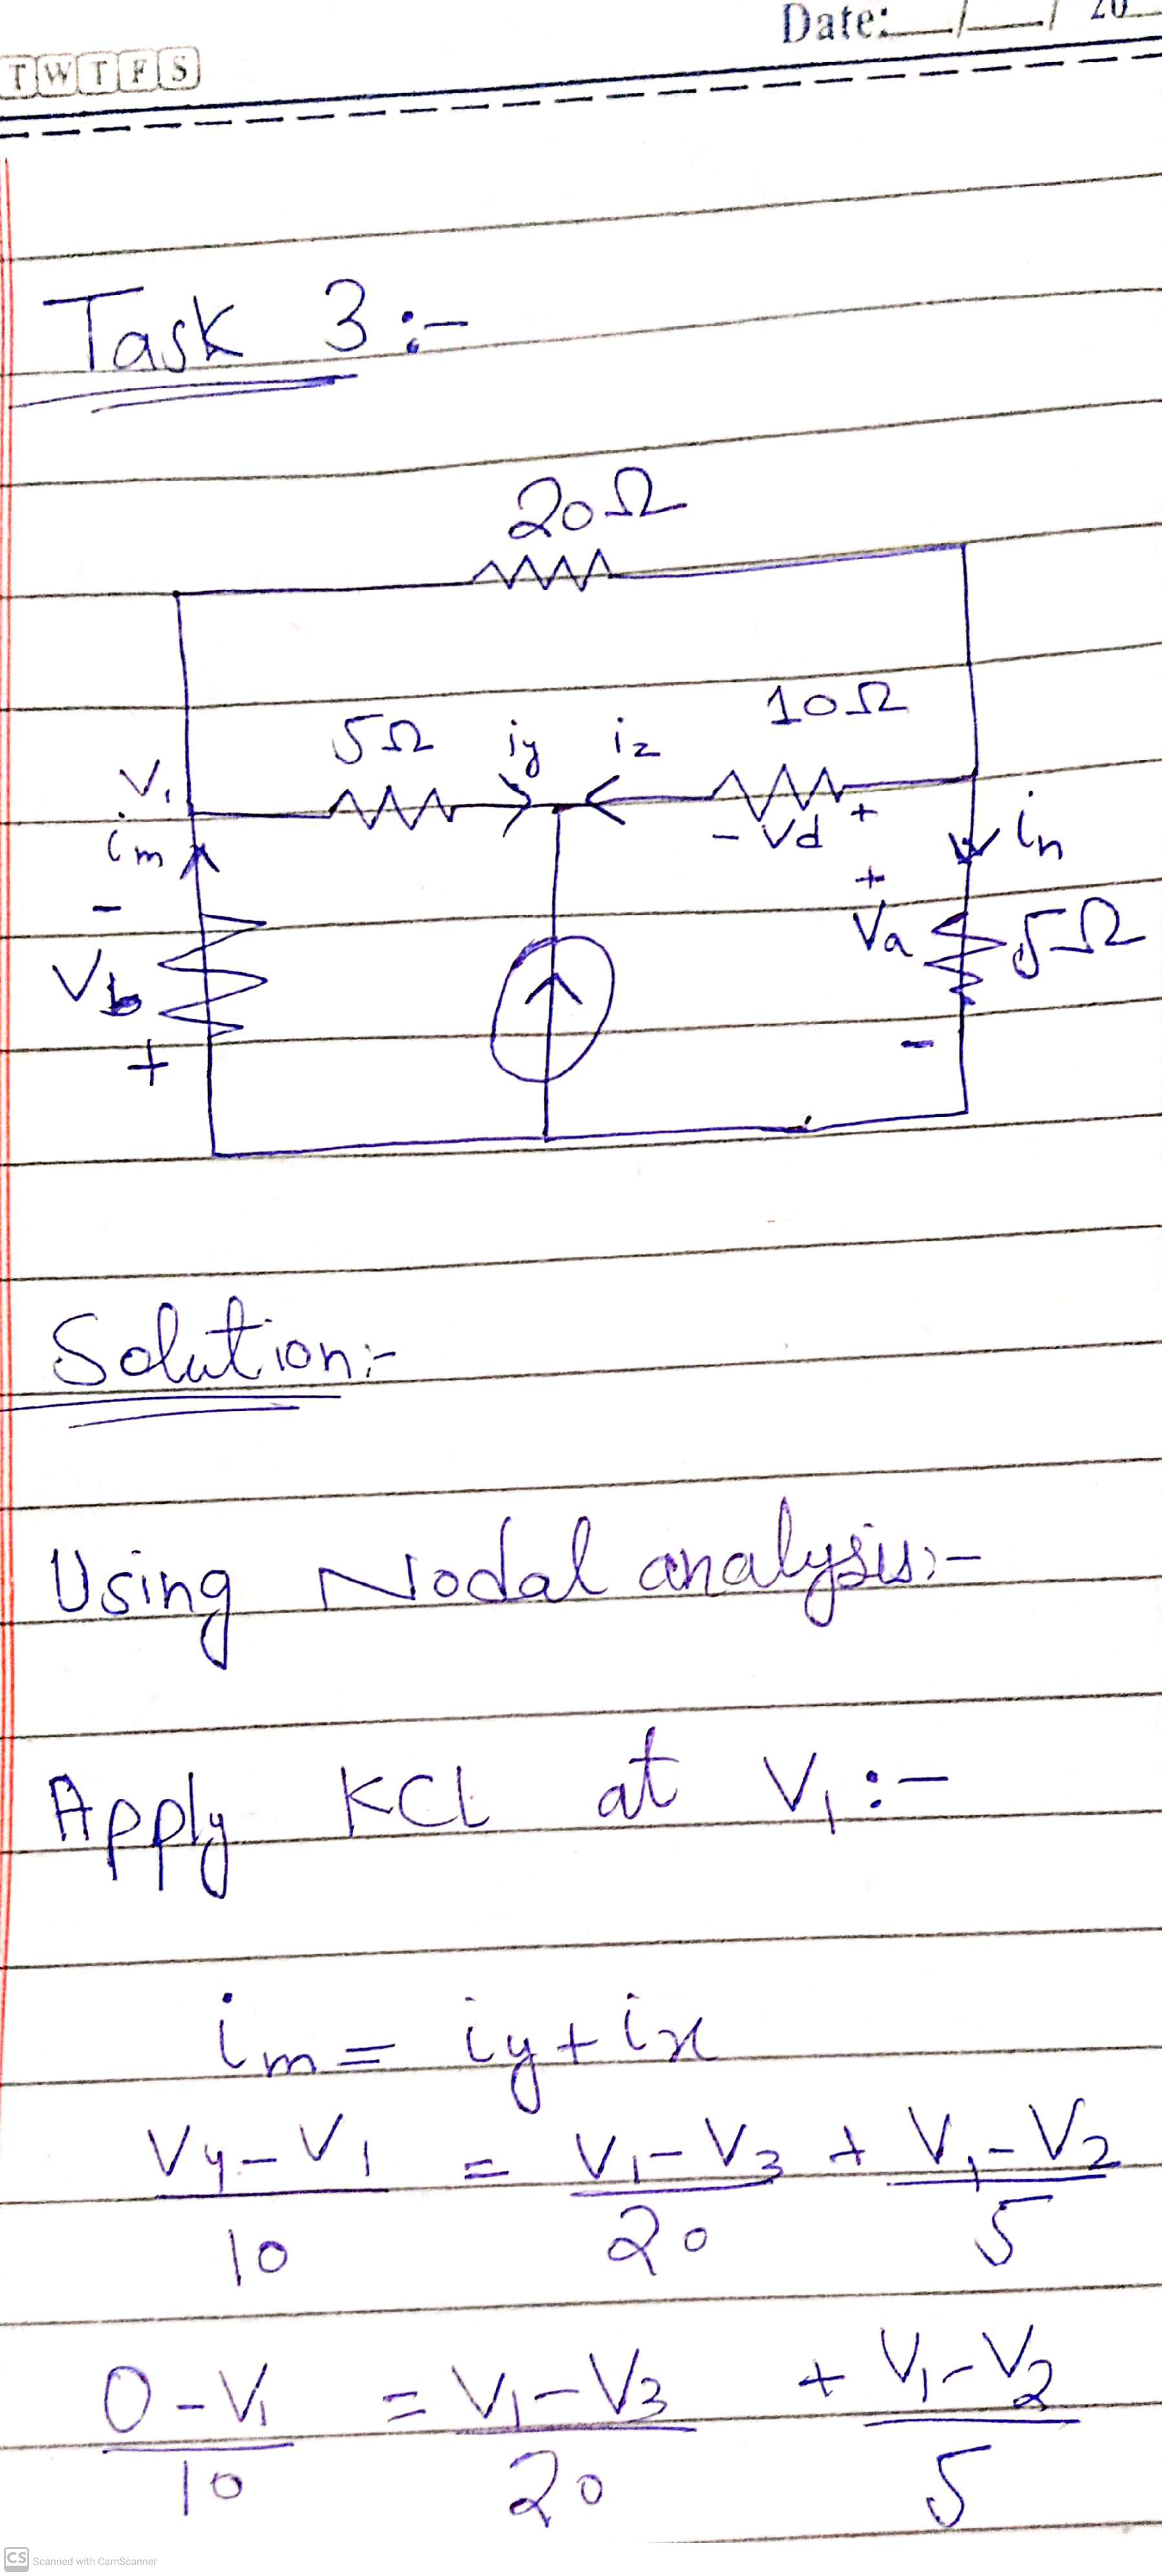 Date: __/__/ 20__
T W T F S
Task 3:-
20Ω
5Ω iy iz 10Ω
V1
im - Vd + in
-
Vb + Va 5Ω
+ -
Solution:-
Using Nodal analysis:-
Apply KCL at V1:-
im = iy + ix
V4-V1 = V1-V3 + V1-V2
10 20 5
0-V1 = V1-V3 + V1-V2
10 20 5
CS Scanned with CamScanner